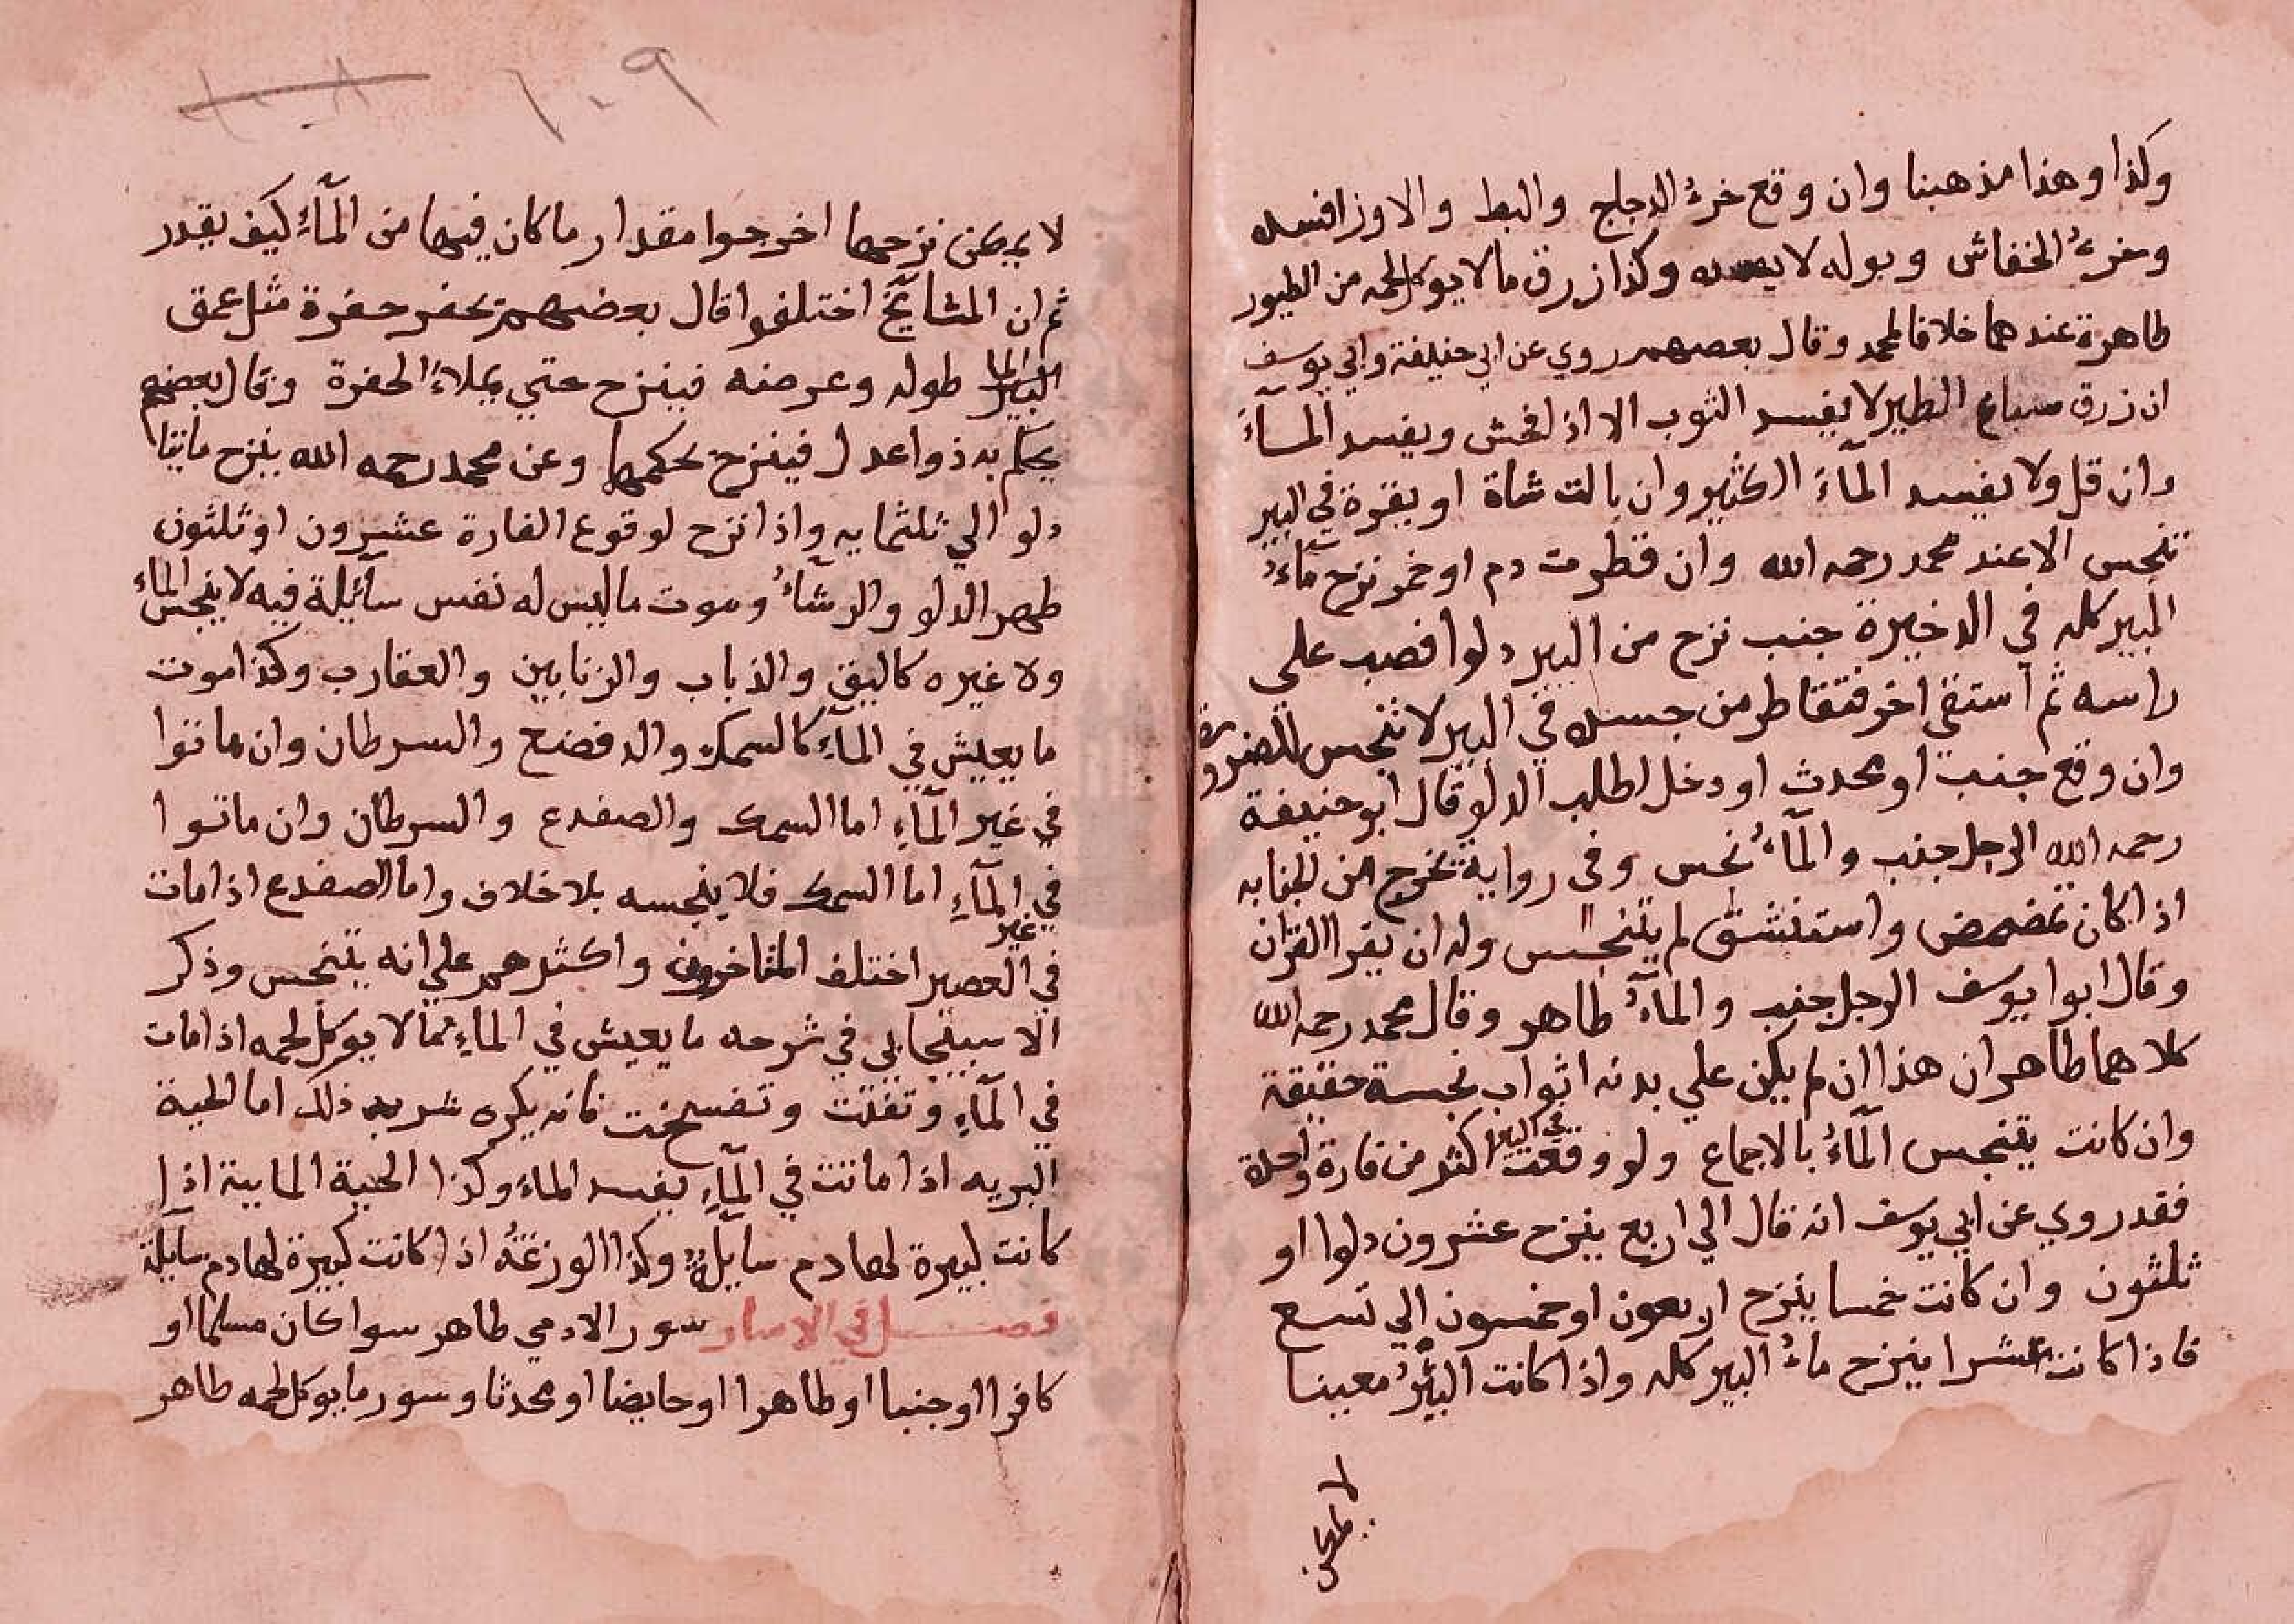 وكذا وهذا مذهبنا وان وقع خرء الدجاج والبط والاوز افسده
وخرء الخفاش وبوله لا يفسده وكذا زرق ما لا يوكل لحمه من الطيور
طاهرة عندهما خلافا لمحمد وقال بعضهم روي عن ابي حنيفة وابي يوسف
ان زرق سباع الطير لا يفسد الثوب الا اذا فحش ويفسد المآء
وان قل ولا يفسد المآء الكثير وان بالت شاة او بقرة في البير
تنجس الا عند محمد رحمه الله وان قطرت دم او خمر نزح مآء
البير كله في الذخيرة جنب نزح من البير دلوا فصب علي
راسه ثم استقي اخر فتقاطر من جسده في البير لا تنجس للضرورة
وان وقع جنب او محدث او دخل لطلب الدلو قال ابو حنيفة
رحمه الله الرجل جنب والمآء نجس وفي رواية تخرج من الجنابه
اذا كان تمضمض واستنشق لم يتنجس وله ان يقرا القران
وقال ابوا يوسف الرجل جنب والمآء طاهر وقال محمد رحمه الله
كلاهما طاهران هذا ان لم يكن علي بدنه اثواب نجسة حقيقة
وان كانت يتنجس المآء بالاجماع ولو وقعت في البير اكثر من فارة واحدة
فقد روي عن ابي يوسف انه قال الي اربع ينزح عشرون دلوا او
ثلثون وان كانت خمسا ينزح اربعون او خمسون الي تسع
فاذا كانت عشرا ينزح ماء البير كله واذا كانت البئر معينا
لا يمكن
١٠٩
١٠٨
لا يمكن نزحها اخرجوا مقدار ما كان فيها من المآء كيف يقدر
ثم ان المشايخ اختلفوا قال بعضهم يحفر حفرة مثل عمق
البير طوله وعرضه فينزح حتي يملاء الحفرة وقال بعضهم
يحكم به ذوا عدل فينزح بحكمها وعن محمد رحمه الله ينزح مايتا
دلو الي ثلثمايه واذا نزح لوقوع الفارة عشرون او ثلثون
طهر الدلو والرشآء وموت ما ليس له نفس سآئلة فيه لا ينجس المآء
ولا غيره كالبق والذباب والزنابير والعقارب وكذا موت
ما يعيش في المآء كالسمك والدفضع والسرطان وان ماتوا
في غير المآء اما السمك والضفدع والسرطان وان ماتوا
في المآء اما السمك فلا ينجسه بلا خلاف واما الضفدع اذا مات
في غير العصير اختلف المتاخرون واكثرهم علي انه يتنجس وذكر
الاسبيجابي في شرحه ما يعيش في المآء مما لا يوكل لحمه اذا مات
في المآء وتفتت وتفسخت فانه يكره شربه ذلك اما الحية
البريه اذا ماتت في المآء يفسد الماء وكذا الحية المايية اذا
كانت كبيرة لها دم سايلة وكذا الوزغة اذا كانت كبيرة لها دم سايلة
فصل في الاسار سور الادمي طاهر سوا كان مسلما او
كافرا او جنبا او طاهرا او حايضا او محدثا وسور ما يوكل لحمه طاهر